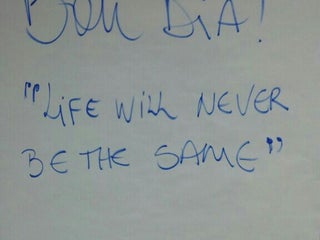 BOM DIA!
"LiFE WiLL NEVER
BE THE SAME"